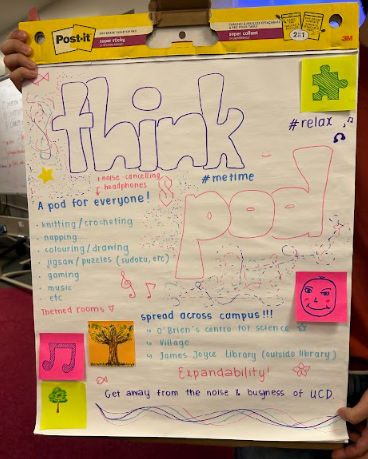 Post-it
super sticky
super collant
3M
think
#relax
noise-cancelling
headphones
#metime
pod
A pod for everyone!
- knitting/crocheting
- napping
- colouring/drawing
- jigsaw/puzzles (sudoku, etc)
- gaming
- music
etc
Themed rooms
spread across campus!!!
O'Brien's centre for science
Village
James Joyce Library (outside library)
Expandability!
Get away from the noise & busyness of UCD